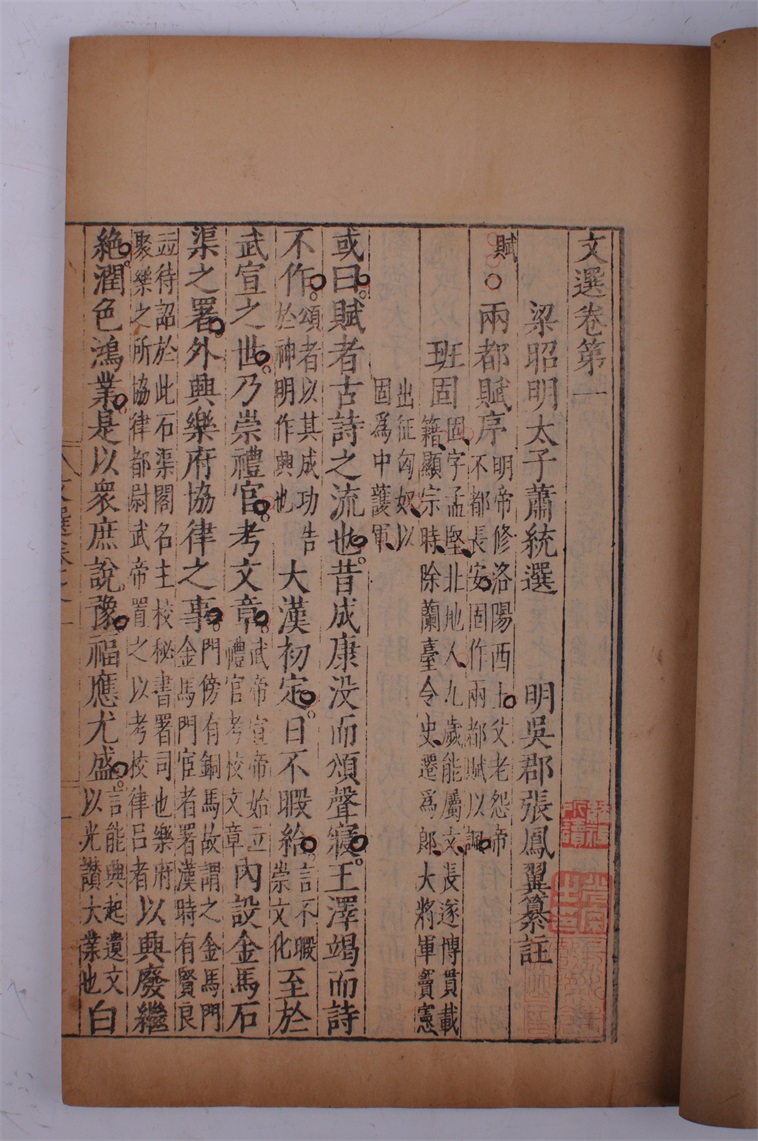 文選卷第一
梁昭明太子蕭統選 明吳郡張鳳翼纂註
賦
兩都賦序 明帝修洛陽西土父老怨帝不都長安固作兩都賦以諷
班固 固字孟堅北地人九歲能屬文長遂博貫載籍顯宗時除蘭臺令史遷爲郎大將軍竇憲
出征匈奴以固爲中護軍
或曰賦者古詩之流也昔成康没而頌聲寢王澤竭而詩
不作頌者以其成功告於神明作興也大漢初定日不暇給言不暇崇文化至於
武宣之世乃崇禮官考文章武帝宣帝始立禮官考校文章內設金馬石
渠之署外興樂府協律之事門傍有銅馬故謂之金馬門金馬門宦者署漢時有賢良
竝待詔於此石渠閣名主校秘書署司也樂府聚樂之所協律都尉武帝置之以考校律呂者以興廢繼
絶潤色鴻業是以衆庶說豫福應尤盛言能興起遺文以光讚大業也白